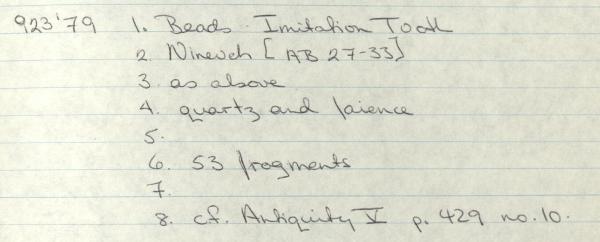 923'79 1. Beads. Imitation Tooth
2. Nineveh [AB 27-33]
3. as above
4. quartz and faience
5.
6. 53 fragments
7.
8. cf. Antiquity V p. 429 no. 10.